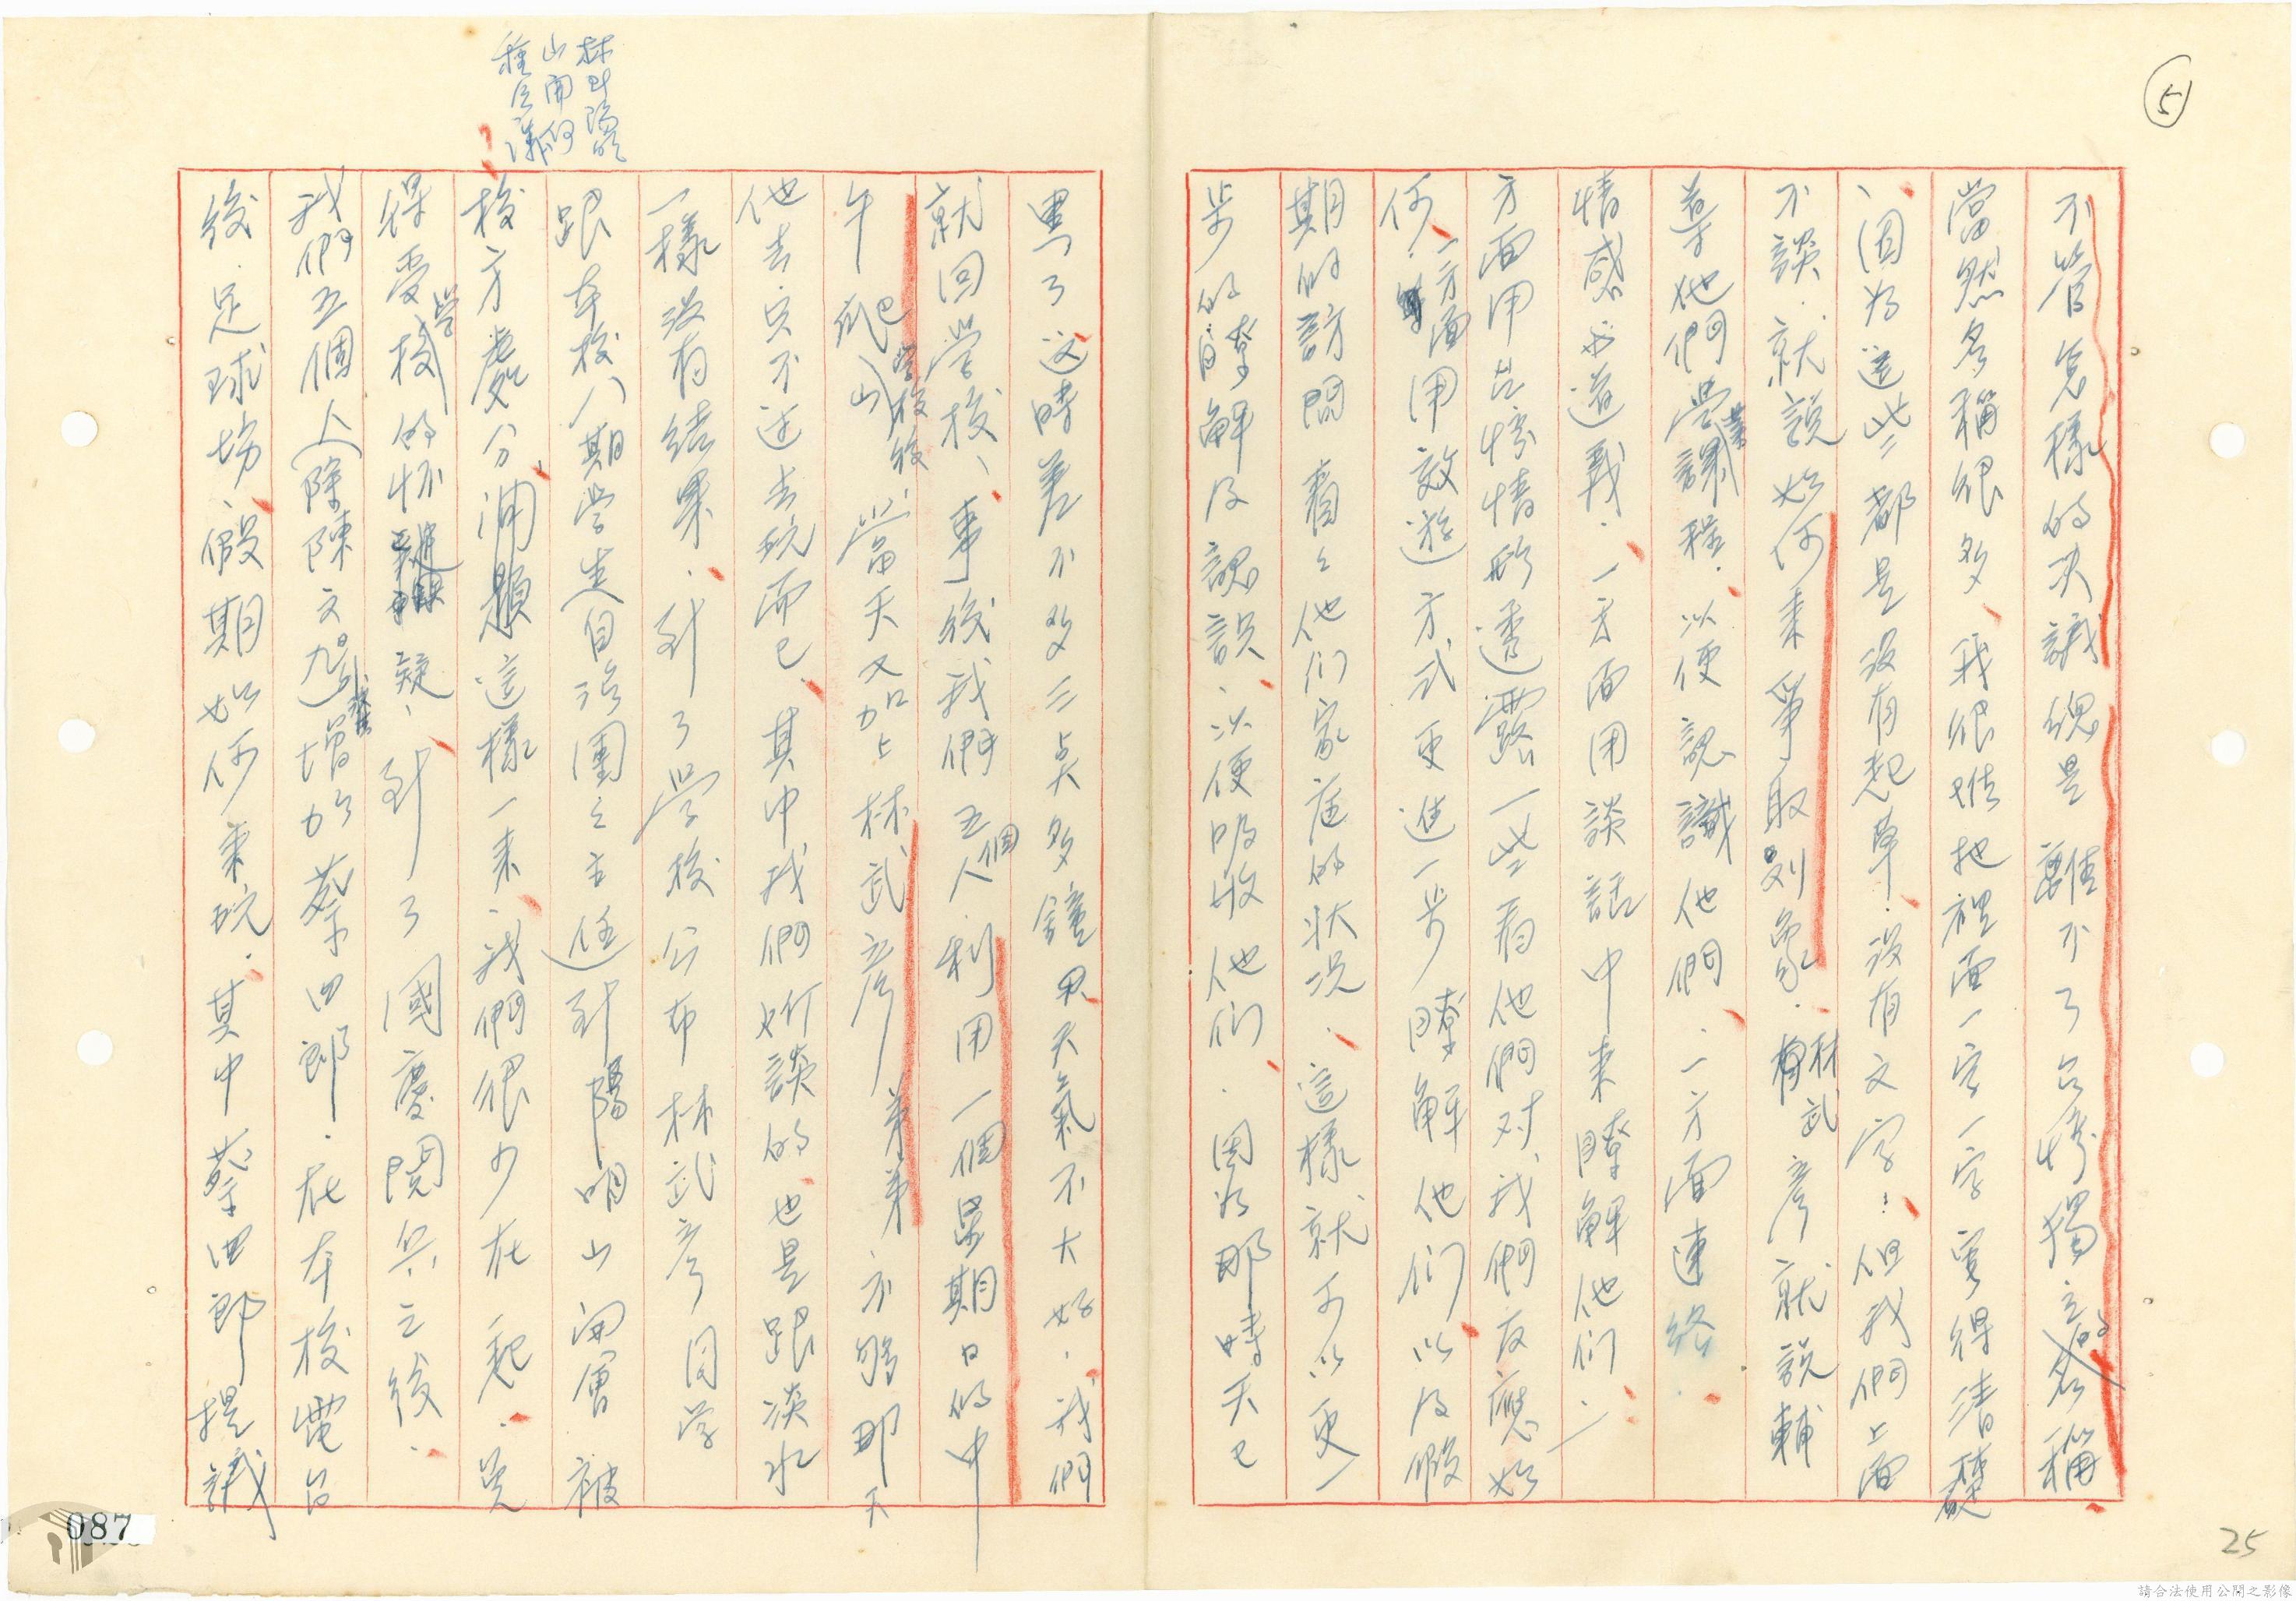 5
不管怎樣的決議總是離不了台灣獨立的名稱
當然名稱很多、我很難把裡面一字一字寫得清楚
、因為這些都是沒有起草、沒有文字！但我們上面
不談．就說如何來爭取對象．林武彥就說輔
導他們學業課程．以便認識他們．一方面連絡
情感 一方面用談話中來瞭解他們．
方面用台灣情形透露一些看他們對我們反應如
何．一方面用郊遊方式更進一步瞭解他們以及假
期的訪問 看看他们家庭的狀況．這樣就可以更一
步的瞭解及認識．以便吸收他们．因為那時天已
黑了這時差不多三點多鐘 天氣不大好．我們
就回學校、事後我們五個人．利用一個星期日的中
午 學校後山 當天又加上林武彥弟弟 那天
他去只不过去玩而已、其中我們所談的也是跟淡水
一樣沒有結果．到了學校公布林武彥同學
跟本校八期學生自治團之主任到陽明山開會被
校方處分 這樣一來．我們很少在一起．覺
得受學校的懷疑、到了國慶閱兵之後．
我們五個人 陳文 增加蔡四郎．在本校電台
後．足球場．假期如何來玩．其中蔡四郎提議
林 陽明
山開何
種會議
087
25
請合法使用公開之影像